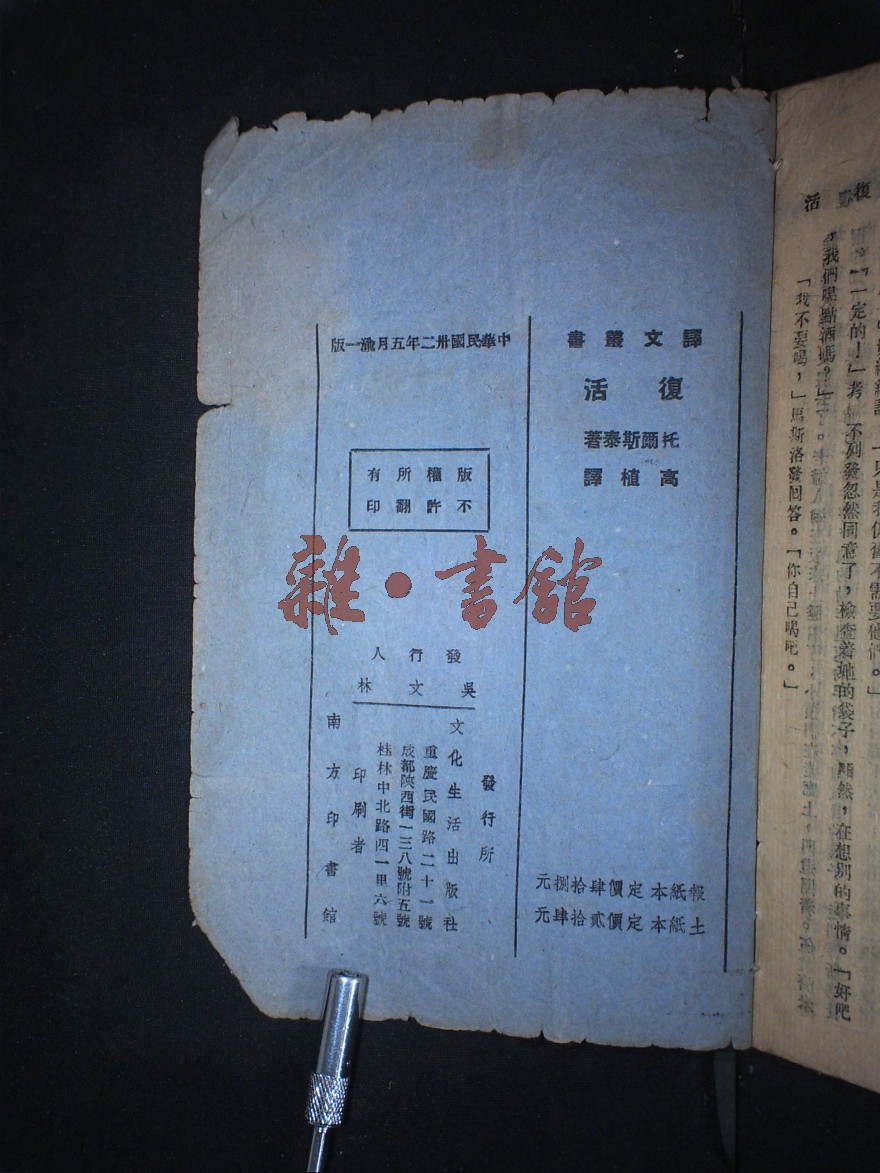 譯文叢書
復活
托爾斯泰著
高植譯
報紙本定價肆拾捌元
土紙本定價貳拾肆元
中華民國卅二年五月渝一版
版權所有
不許翻印
發行人
吳文林
發行所
文化生活出版社
重慶民國路二十一號
成都陝西街一三八號附五號
桂林中北路四一里六號
印刷者
南方印書館
雜·書館
復活
「一定的!」考
不列發忽然同意了,檢查着她的袋子,顯然,在想別的事情。「好吧
,我們喝點酒嗎。」
「我不要喝,」馬斯洛發回答。「你自己喝吧。」